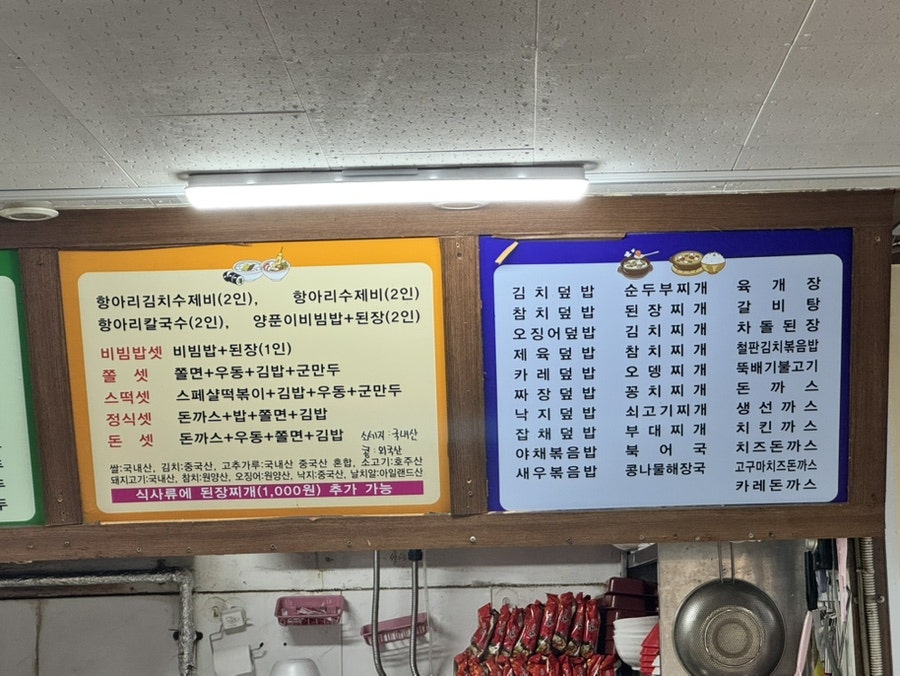 항아리김치수제비(2인), 항아리수제비(2인)
항아리칼국수(2인), 양푼이비빔밥+된장(2인)
비빔밥셋 비빔밥+된장(1인)
쫄 셋 쫄면+우동+김밥+군만두
스떡셋 스페샬떡볶이+김밥+우동+군만두
정식셋 돈까스+밥+쫄면+김밥
돈 셋 돈까스+우동+쫄면+김밥
소세지:국내산
굴:외국산
쌀:국내산, 김치:중국산, 고추가루:국내산 중국산 혼합, 소고기:호주산
돼지고기:국내산, 참치:원양산, 오징어:원양산, 낙지:중국산, 날치알:아일랜드산
식사류에 된장찌개(1,000원) 추가 가능
김치덮밥
참치덮밥
오징어덮밥
제육덮밥
카레덮밥
짜장덮밥
낙지덮밥
잡채덮밥
야채볶음밥
새우볶음밥
순두부찌개
된장찌개
김치찌개
참치찌개
오뎅찌개
꽁치찌개
쇠고기찌개
부대찌개
북어국
콩나물해장국
육개장
갈비탕
차돌된장
철판김치볶음밥
뚝배기불고기
돈까스
생선까스
치킨까스
치즈돈까스
고구마치즈돈까스
카레돈까스